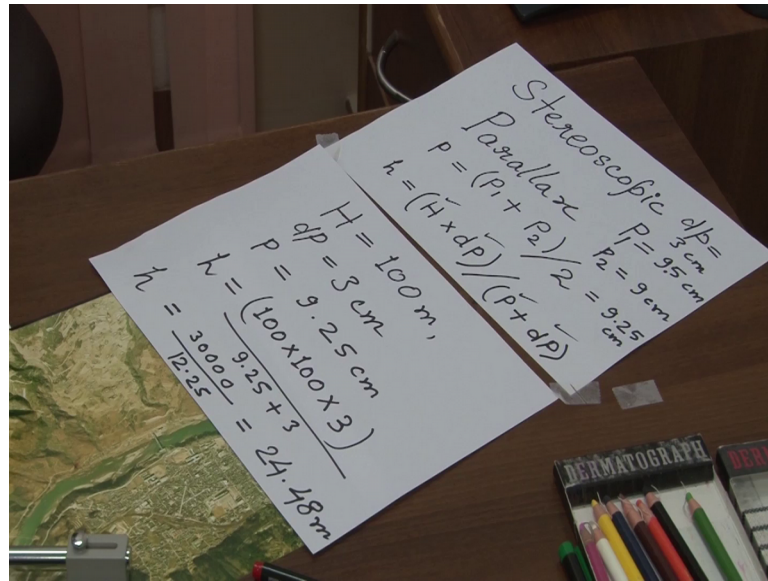 Stereoscopic
Parallax
dp=
3 cm
P₁ = 9.5 cm
P₂ = 9 cm
P = (P₁ + P₂)/2 = 9.25
cm
h = (H x dP)/(P + dP)
H = 100 m,
dp = 3 cm
P = 9.25 cm
h = (100x100x3)
9.25 + 3
h = 30000
12.25
= 24.48m
DERMATOGRAPH
DERM